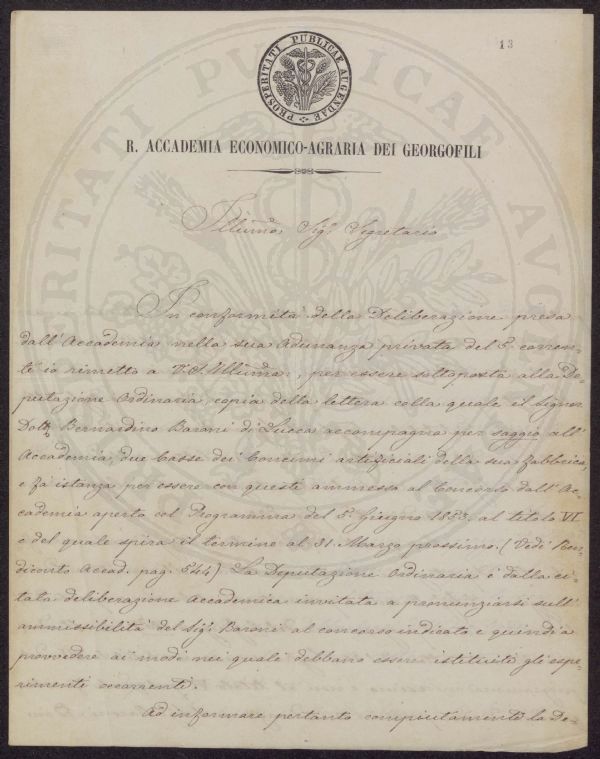 13
PROSPERITATI PUBLICAE AUGENDAE
R. ACCADEMIA ECONOMICO-AGRARIA DEI GEORGOFILI
Illmo Sigr Segretario
In conformità della Deliberazione presa
dall'Accademia nella sua Adunanza privata del 5 corren-
te io rimetto a V. S. Illma, per essere sottoposta alla De-
putazione Ordinaria, copia della lettera colla quale il Signor
Dott. Bernardino Baroni di Lucca accompagna per saggio all'
Accademia, due Casse dei Concimi artificiali della sua fabbrica,
e fa istanza per essere con questi ammesso al Concorso dall'Ac-
cademia aperto col Programma del 5 Giugno 1853. al titolo VI
e del quale spira il termine al 31. Marzo prossimo. (Vedi Ren-
diconto Accad. pag. 544) La Deputazione Ordinaria è dalla ci-
tata deliberazione Accademica invitata a pronunziarsi sull'
ammissibilità del Sigr Baroni al concorso indicato e quindi a
provvedere ai modi nei quali debbano essere istituite gli espe-
rimenti occorrenti.
Ad informare pertanto compiutamente la De-